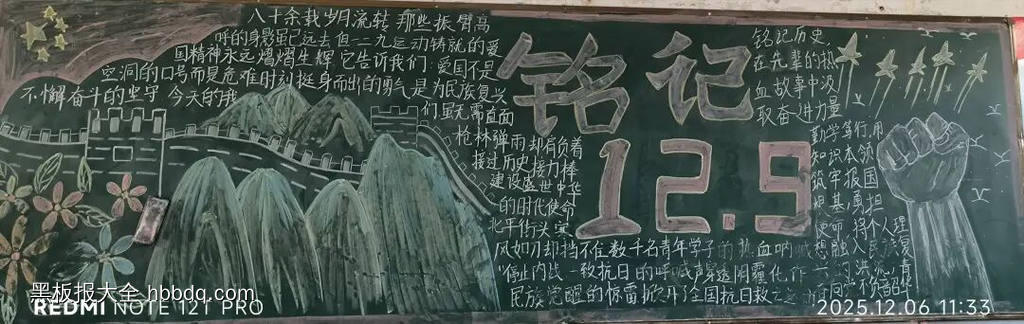 八十余载岁月流转 那些振臂高
呼的身影虽已远去但一二九运动铸就的爱
国精神永远熠熠生辉 它告诉我们 爱国不是
空洞的口号而是危难时刻挺身而出的勇气是为民族复兴
不懈奋斗的坚守 今天的我
们虽无需直面
枪林弹雨却有负着
接过历史接力棒
建设盛世中华
的时代使命
铭记
12.9
铭记历史,
在先辈的热
血故事中汲
取奋进力量
勤学笃行,用
知识本领
筑牢报国
根基,勇担
将个人理
融入民族复
北平街头 寒
风如刀却挡不住数千名青年学子的热血呐喊
停止内战 一致抗日的呼喊声穿透阴霾化作一
民族觉醒的惊雷
全国抗日救亡
黑板报大全 hbbdq.com
REDMI NOTE 12T PRO
2025.12.06 11:33